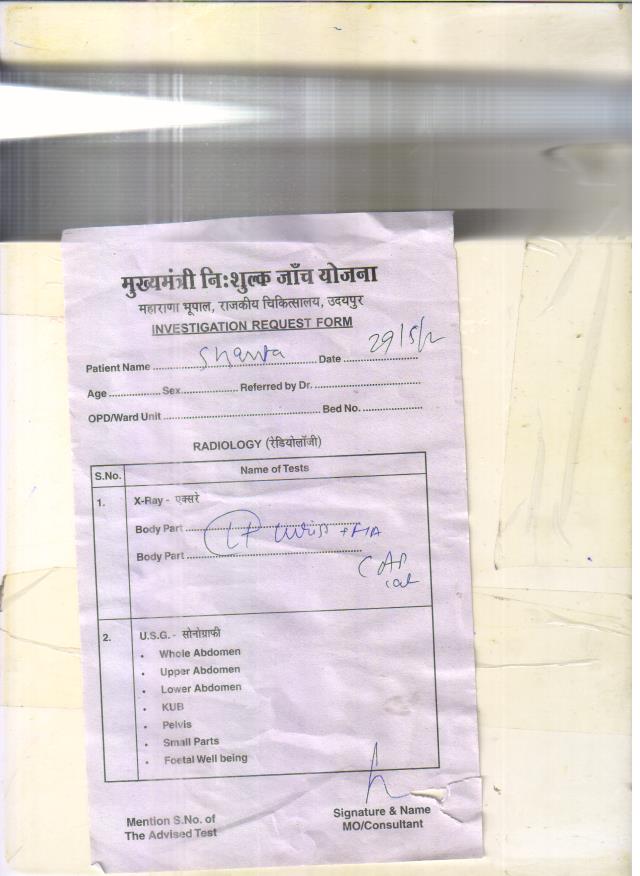 मुख्यमंत्री निःशुल्क जाँच योजना
महाराणा भूपाल, राजकीय चिकित्सालय, उदयपुर
INVESTIGATION REQUEST FORM
Patient Name ........ Date ........
Age ........ Sex ........ Referred by Dr. ........
OPD/Ward Unit ........ Bed No. ........
RADIOLOGY (रेडियोलॉजी)
S.No. Name of Tests
1. X-Ray - एक्सरे
Body Part ........
Body Part ........
2. U.S.G. - सोनोग्राफी
• Whole Abdomen
• Upper Abdomen
• Lower Abdomen
• KUB
• Pelvis
• Small Parts
• Foetal Well being
Mention S.No. of
The Advised Test
Signature & Name
MO/Consultant